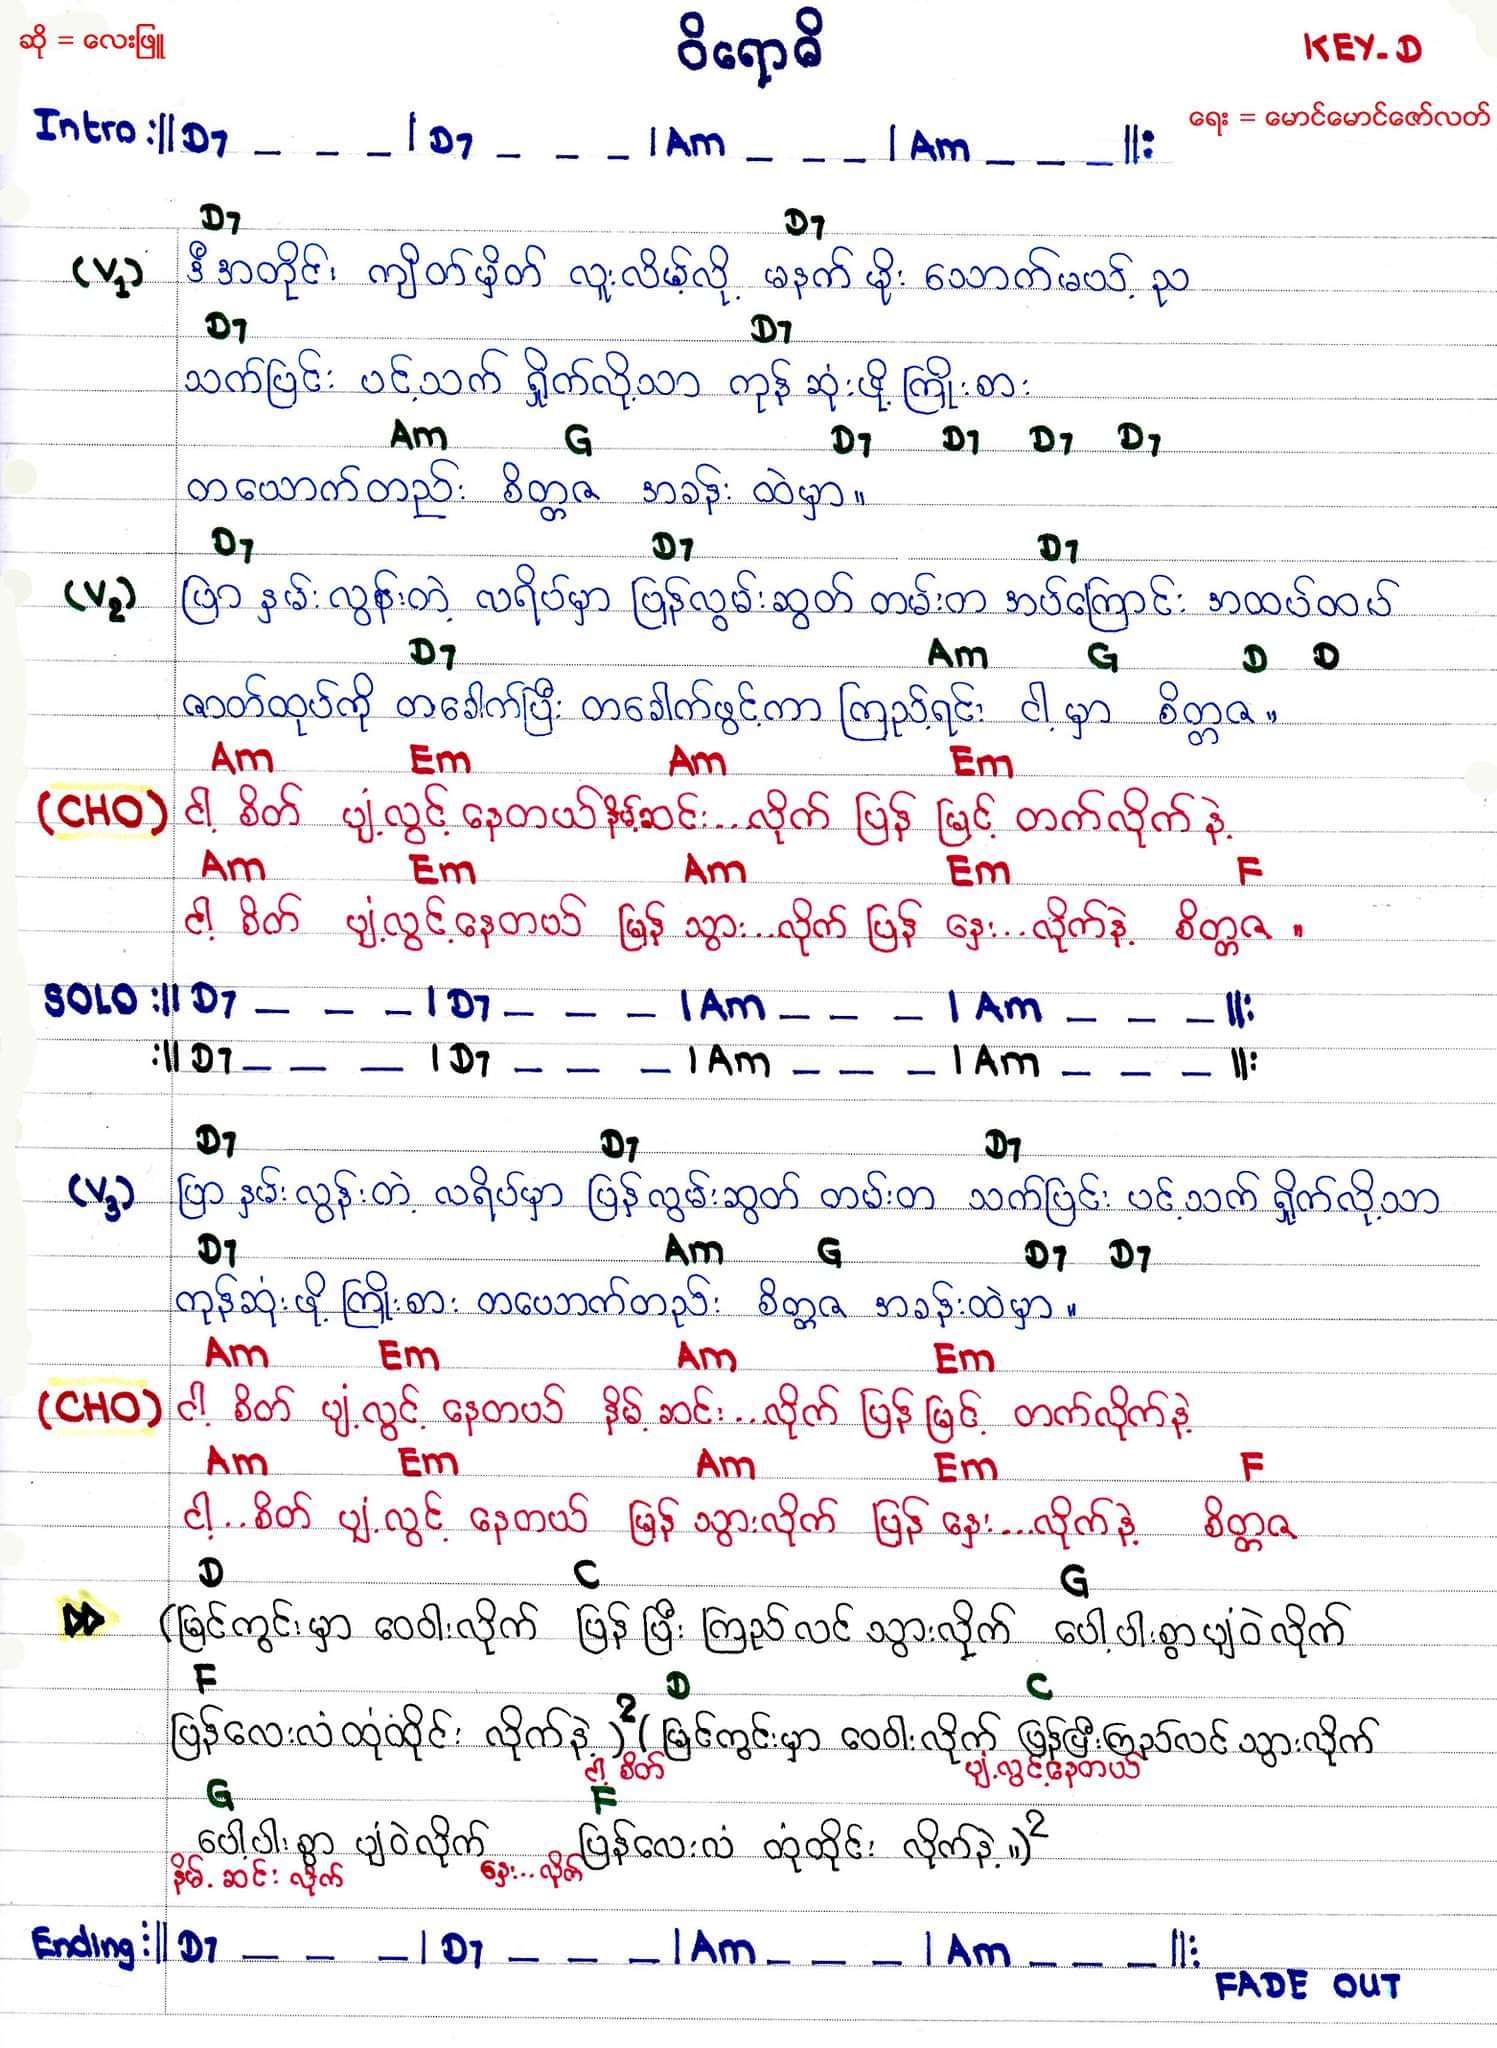 ဆို = လေးဖြူ
ဝိရောဓိ
KEY-D
ရေး = မောင်မောင်ဇော်လတ်
Intro :|| D7 _ _ _ | D7 _ _ _ | Am _ _ _ | Am _ _ _ ||:
D7 D7
(V1) ဒီအတိုင်း ကျိတ်မှိတ် လူးလိမ့်လို့ မနက်မိုး သောက်မယ့် ည
D7 D7
သက်ပြင်း ပင့်သက် ရှိုက်လို့သာ ကုန်ဆုံးဖို့ ကြိုးစား
Am G D7 D7 D7 D7
တယောက်တည်း စိတ္တဇ အခန်း ထဲမှာ။
D7 D7 D7
(V2) ပြာ နှမ်းလွန်းတဲ့ လရိပ်မှာ ပြန်လွမ်းဆွတ် တမ်းတ အပ်ကြောင်း အထပ်ထပ်
D7 Am G D D
ဇာတ်ထုပ်ကို တခေါက်ပြီး တခေါက်ဖွင့်ကာ ကြည့်ရင်း ငါ့မှာ စိတ္တဇ။
Am Em Am Em
(CHO) ငါ့ စိတ် ပျံ့လွင့် နေတယ် နိမ့်ဆင်း...လိုက် ပြန် မြင့် တက်လိုက်နဲ့
Am Em Am Em F
ငါ့ စိတ် ပျံ့လွင့်နေတယ် မြန် သွား...လိုက် ပြန် နှေး...လိုက်နဲ့ စိတ္တဇ ။
SOLO :|| D7 _ _ _ | D7 _ _ _ | Am _ _ _ | Am _ _ _ ||:
:|| D7 _ _ _ | D7 _ _ _ | Am _ _ _ | Am _ _ _ ||:
D7 D7 D7
(V3) ပြာ နှမ်းလွန်းတဲ့ လရိပ်မှာ ပြန်လွမ်းဆွတ် တမ်းတ သက်ပြင်း ပင့်သက် ရှိုက်လို့သာ
D7 Am G D7 D7
ကုန်ဆုံးဖို့ ကြိုးစား တယောက်တည်း စိတ္တဇ အခန်းထဲမှာ ။
Am Em Am Em
(CHO) ငါ့ စိတ် ပျံ့လွင့် နေတယ် နိမ့် ဆင်း...လိုက် ပြန် မြင့် တက်လိုက်နဲ့
Am Em Am Em F
ငါ့...စိတ် ပျံ့လွင့် နေတယ် မြန် သွားလိုက် ပြန် နှေး...လိုက်နဲ့ စိတ္တဇ
D C G
(မြင်ကွင်းမှာ ဝေဝါးလိုက် ပြန် ပြီး ကြည်လင် သွားလိုက် ပေါ့ပါးစွာ ပျံဝဲလိုက်
F D C
ပြန်လေးလံ ထုံထိုင်း လိုက်နဲ့ )2 ( မြင်ကွင်းမှာ ဝေဝါးလိုက် ပြန်ပြီးကြည်လင် သွားလိုက်
ငါ့ စိတ် ပျံ့လွင့်နေတယ်
G F
ပေါ့ပါးစွာ ပျံဝဲလိုက် ပြန်လေးလံ ထုံထိုင်း လိုက်နဲ့ ။)2
နိမ့် ဆင်း လိုက် နှေး...လိုက်
Ending :|| D7 _ _ _ | D7 _ _ _ | Am _ _ _ | Am _ _ _ ||:
FADE OUT